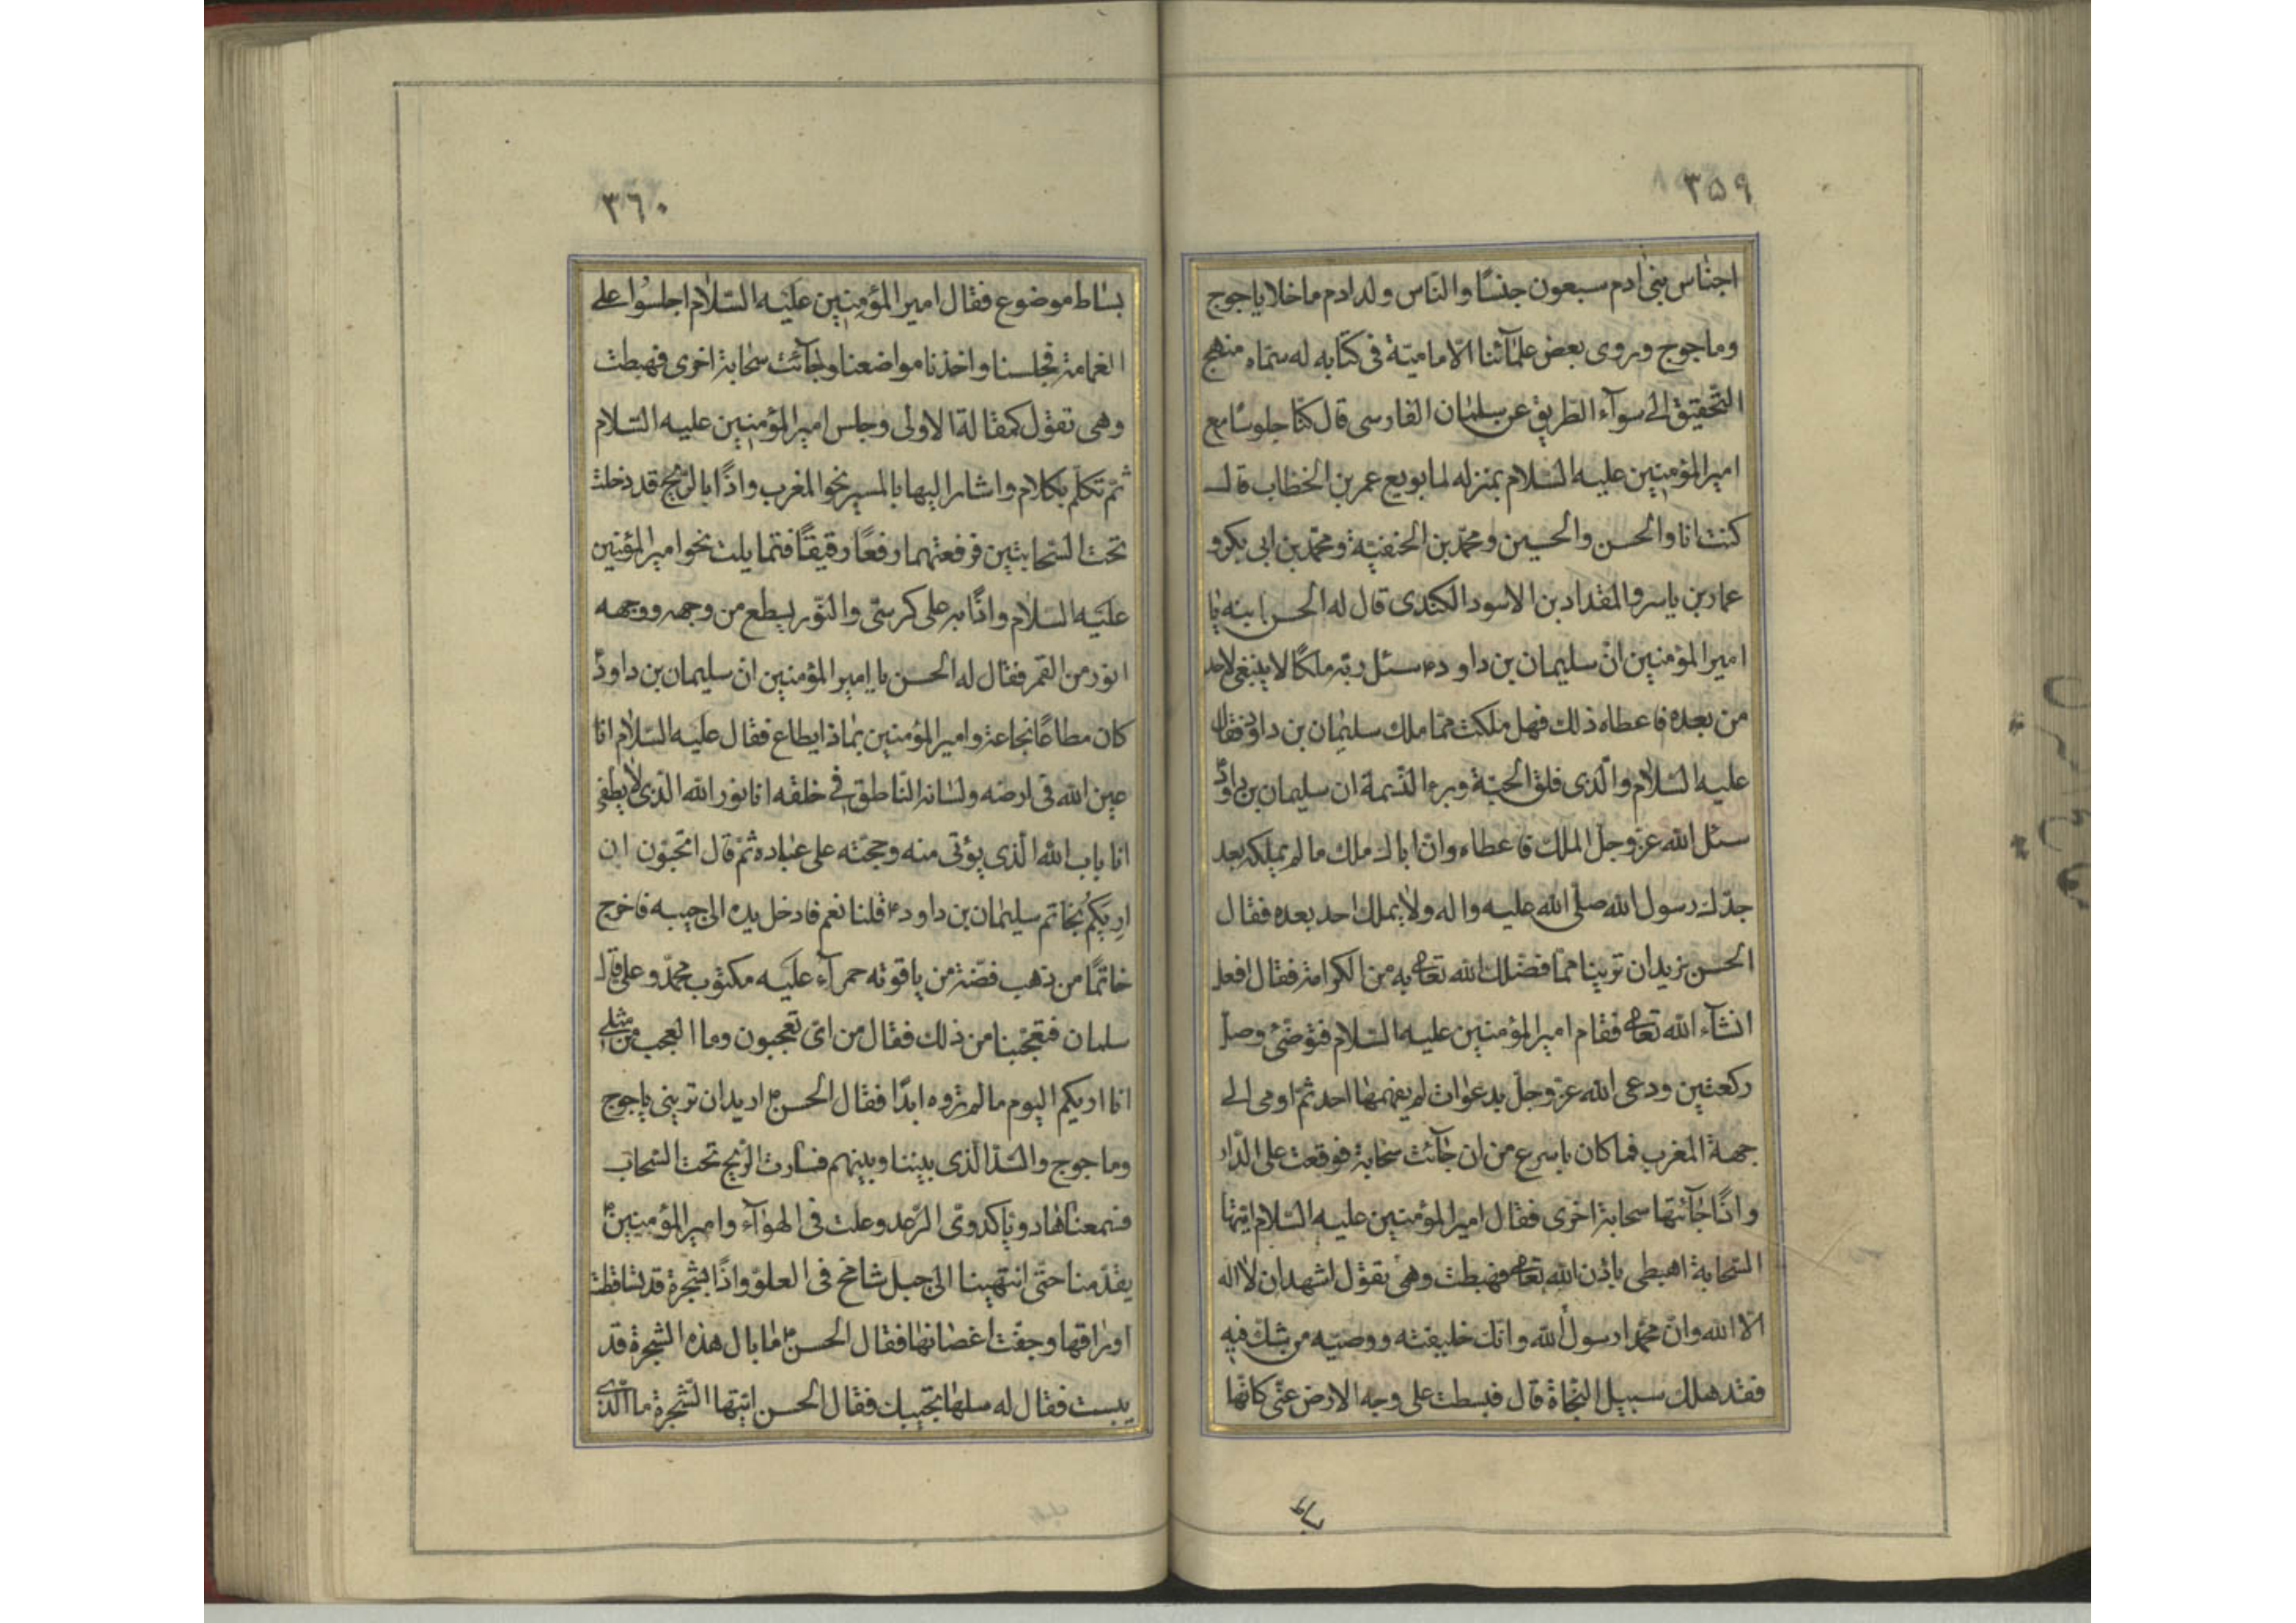 ٣۵٩
اجناس بنی ادم سبعون جنسًا والنّاس ولد ادم ما خلا یاجوج
وماجوج وروی بعض علمآئنا الامامیّة فی کتابه له سمّاه منهج
التّحقیق الی سوآء الطریق عن سلمان الفارسی قال کنّا جلوسًا مع
امیر المؤمنین علیه السّلام بمنزله لما بویع عمر بن الخطاب قال
کنت انا والحسن والحسین ومحمّد بن الحنفیّة ومحمّد بن ابی بکر و
عمار بن یاسر والمقداد بن الاسود الکندی قال له الحسن ابنه یا
امیر المؤمنین انّ سلیمان بن داود ع سئل ربّه ملکًا لا ینبغی لاحد
من بعده فاعطاه ذلک فهل ملکت ممّا ملک سلیمان بن داود فقال
علیه السّلام والّذی فلق الحبّة وبرء النّسمة ان سلیمان بن داود
سئل الله عزّ وجلّ الملک فاعطاه وانّ اباک ملک ما لم یملکه بعد
جدّک رسول الله صلّی الله علیه واله ولا یملک احد بعده فقال
الحسن نرید ان ترینا ممّا فضّلک الله تعالی به من الکرامة فقال افعل
انشآء الله تعالی فقام امیر المؤمنین علیه السّلام فتوضّئ وصلّ
رکعتین ودعی الله عزّ وجلّ بدعوات لم یفهمها احد ثمّ اومی الی
جهة المغرب فما کان باسرع من ان جآئت سحابة فوقعت علی الدّار
واذًا جآئتها سحابة اخری فقال امیر المؤمنین علیه السّلام ایتها
السّحابة اهبطی باذن الله تعالی فهبطت وهی تقول اشهد ان لا اله
الّا الله وانّ محمّدا رسول الله وانّک خلیفته ووصیّه من شکّ فیه
فقد هلک سبیل النّجاة قال فبسطت علی وجه الارض حتّی کانّها
٣٦٠
بساط موضوع فقال امیر المؤمنین علیه السّلام اجلسوا علی
الغمامة فجلسنا واخذنا مواضعنا وجآئت سحابة اخری فهبطت
وهی تقول کمقالة الاولی وجلس امیر المؤمنین علیه السّلام
ثمّ تکلّم بکلام واشار الیها بالمسیر نحو المغرب واذًا بالرّیح قد دخلت
تحت السّحابتین فرفعتهما رفعًا رقیقًا فتمایلت نحو امیر المؤمنین
علیه السّلام واذًا به علی کرسیّ والنّور یسطع من وجهه ووجهه
انور من القمر فقال له الحسن یا امیر المؤمنین انّ سلیمان بن داود
کان مطاعًا بخاتمه وامیر المؤمنین بماذا یطاع فقال علیه السّلام انا
عین الله فی ارضه ولسانه النّاطق فی خلقه انا نور الله الّذی لا یطفی
انا باب الله الّذی یؤتی منه وحجّته علی عباده ثمّ قال اتحبّون ان
اریکم بخاتم سلیمان بن داود ع قلنا نعم فادخل یده الی جیبه فاخرج
خاتمًا من ذهب فصّه من یاقوته حمرآء علیه مکتوب محمّد وعلی قال
سلمان فتعجّبنا من ذلک فقال من ایّ تعجبون وما العجب من مثلی
انا اریکم الیوم ما لم تروه ابدًا فقال الحسن ع ارید ان ترینی یاجوج
وماجوج والسّدّ الّذی بیننا وبینهم فسارت الرّیح تحت السّحاب
فسمعنا لها دویًا کدویّ الرّعد وعلت فی الهوآء وامیر المؤمنین ع
یقدّمنا حتّی انتهینا الی جبل شامخ فی العلوّ واذًا بشجرة قد تساقطت
اوراقها وجفّت اغصانها فقال الحسن ع ما بال هذه الشجرة قد
یبست فقال له سلها تجیبک فقال الحسن ایّتها الشّجرة ما الّذی